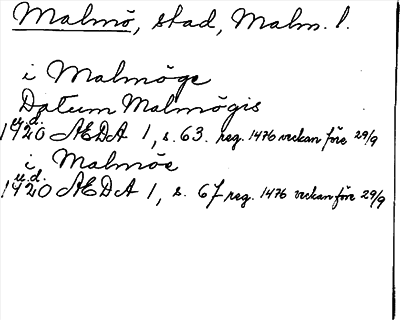 Malmö, stad, Malm. l.
i Malmöge
Datum Malmögis
u.d.
1420 ÆDA 1, s. 63. reg. 1476 veckan före 29/9
i Malmöe
u.d.
1420 ÆDA 1, s. 67 reg. 1476 veckan före 29/9